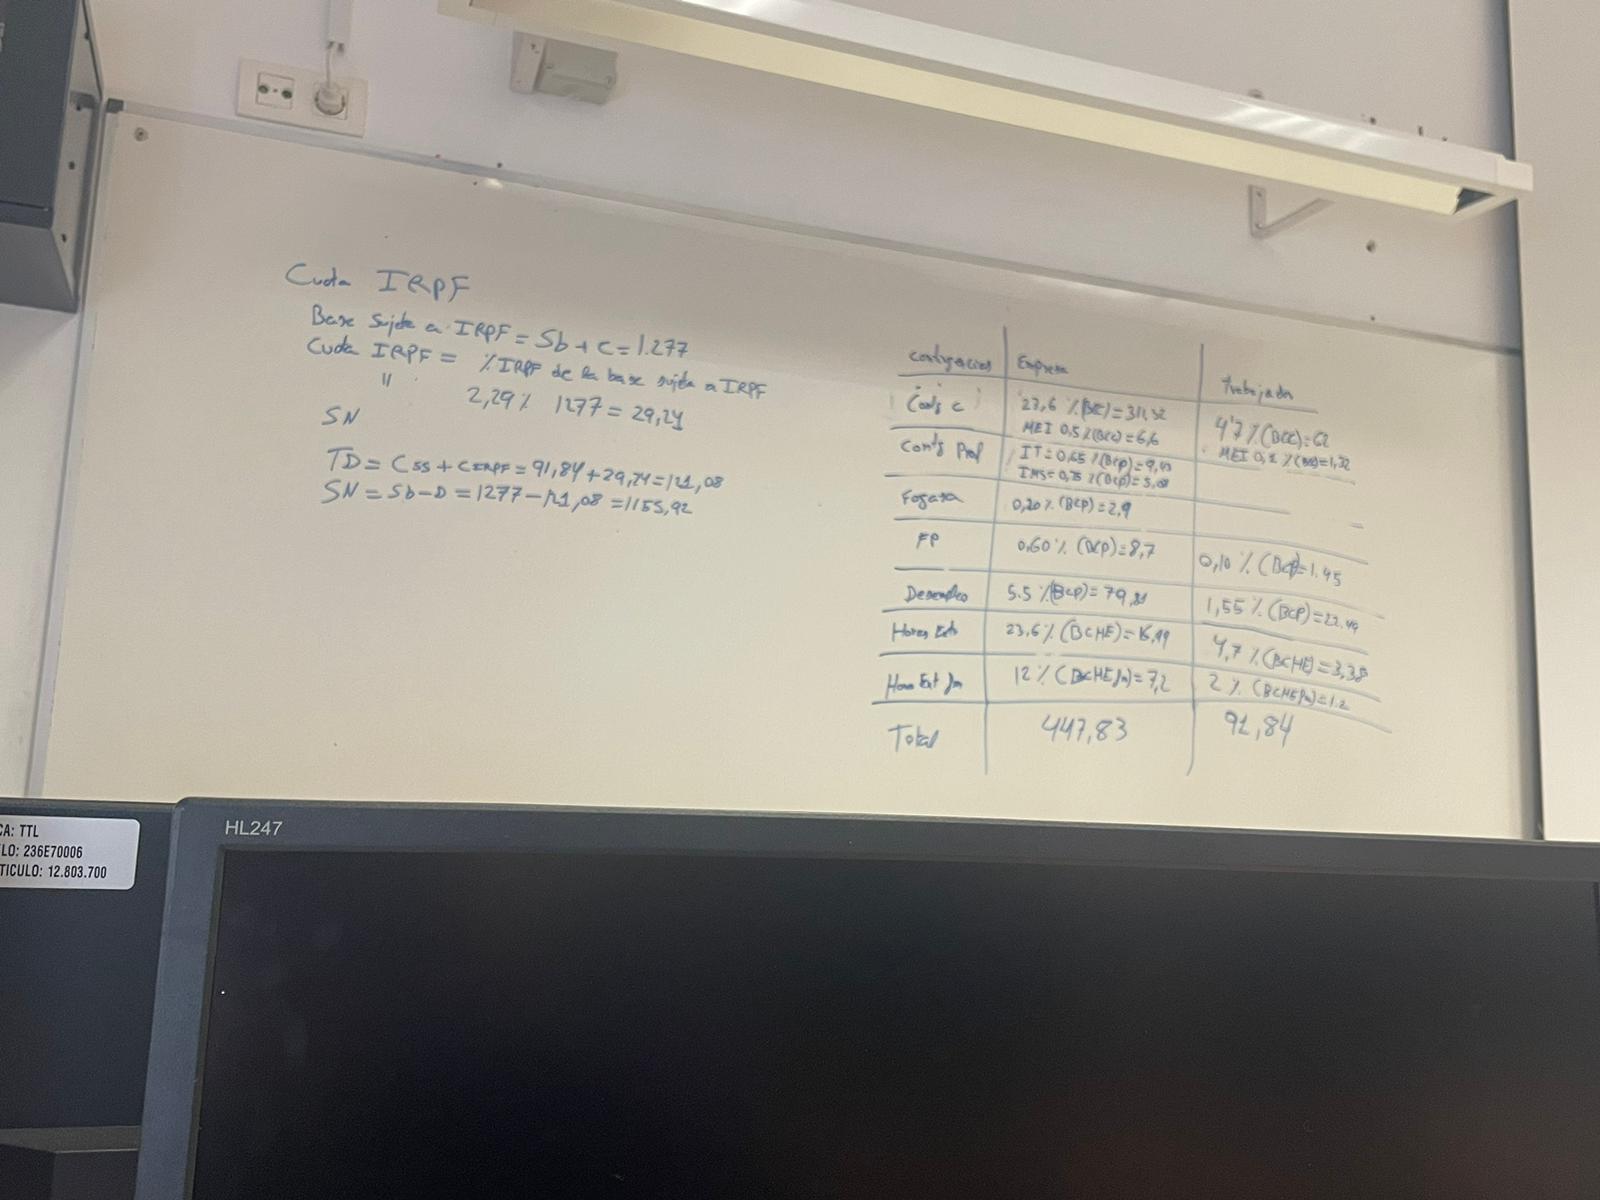 Cuota IRPF
Base sujeta a IRPF = Sb + C = 1.277
Cuota IRPF = % IRPF de la base sujeta a IRPF
" 2,29% 1277 = 29,24
SN
TD = Css + CIRPF = 91,84 + 29,24 = 121,08
SN = Sb - D = 1277 - 121,08 = 1155,92
Empresa Trabajador
Cont c 23,6 % (BCC) = 311,52 4'7 % (BCC) = 62
MEI 0,5 % (BCC) = 6,6 MEI 0,1 % (BCC) = 1,32
Cont Prof IT = 0,65 % (BCP) = 9,43
IMS = 0,35 % (BCP) = 5,08
Fogasa 0,20% (BCP) = 2,9 —
FP 0,60% (BCP) = 8,7 0,10 % (BCP) = 1.45
5.5 % (BCP) = 79,81 1,55 % (BCP) = 22.49
Horas Ext 23,6% (BCHE) = 16,99 4,7 % (BCHE) = 3,38
12 % (BCHEfm) = 7,2 2 % (BCHEfm) = 1.2
Total 447,83 91,84
HL247
CA: TTL
LO: 236E70006
TICULO: 12.803.700